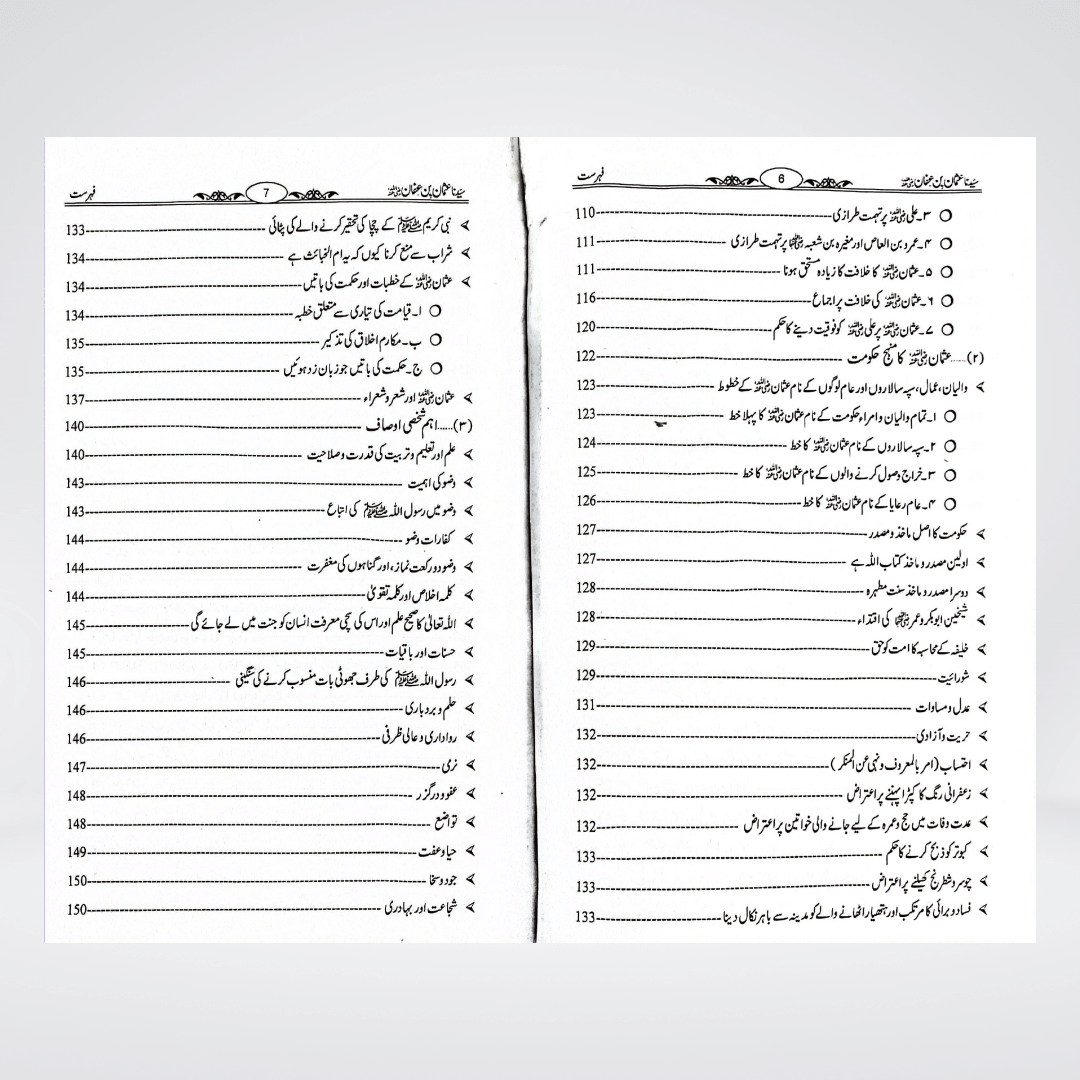 سیدنا عثمان بن عفان رضی اللہ عنہ 6 فہرست
۳۔ علی رضی اللہ عنہ پر تہمت طرازی 110
۴۔ عمرو بن العاص اور مغیرہ بن شعبہ رضی اللہ عنہما پر تہمت طرازی 111
۵۔ عثمان رضی اللہ عنہ کا خلافت کا زیادہ مستحق ہونا 111
۶۔ عثمان رضی اللہ عنہ کی خلافت پر اجماع 116
۷۔ عثمان رضی اللہ عنہ پر علی رضی اللہ عنہ کو فوقیت دینے کا حکم 120
(۲)..... عثمان رضی اللہ عنہ کا منہج حکومت 122
والیان، عمال، سپہ سالاروں اور عام لوگوں کے نام عثمان رضی اللہ عنہ کے خطوط 123
۱۔ تمام والیان وامراء حکومت کے نام عثمان رضی اللہ عنہ کا پہلا خط 123
۲۔ سپہ سالاروں کے نام عثمان رضی اللہ عنہ کا خط 124
۳۔ خراج وصول کرنے والوں کے نام عثمان رضی اللہ عنہ کا خط 125
۴۔ عام رعایا کے نام عثمان رضی اللہ عنہ کا خط 126
حکومت کا اصل ماخذ ومصدر 127
اولین مصدر وماخذ کتاب اللہ ہے 127
دوسرا مصدر وماخذ سنت مطہرہ 128
شیخین ابوبکر وعمر رضی اللہ عنہما کی اقتداء 128
خلیفہ کے محاسبہ کا امت کو حق 129
شورائیت 129
عدل ومساوات 131
حریت وآزادی 132
احتساب (امر بالمعروف ونہی عن المنکر) 132
زعفرانی رنگ کا کپڑا پہننے پر اعتراض 132
عدت وفات میں حج وعمرہ کے لیے جانے والی خواتین پر اعتراض 132
کبوتر کو ذبح کرنے کا حکم 133
چوسر وشطرنج کھیلنے پر اعتراض 133
فساد وبرائی کا مرتکب اور ہتھیار اٹھانے والے کو مدینہ سے باہر نکال دینا 133
سیدنا عثمان بن عفان رضی اللہ عنہ 7 فہرست
نبی کریم ﷺ کے چچا کی تحقیر کرنے والے کی پٹائی 133
شراب سے منع کرنا کیوں کہ یہ ام الخبائث ہے 134
عثمان رضی اللہ عنہ کے خطبات اور حکمت کی باتیں 134
ا۔ قیامت کی تیاری سے متعلق خطبہ 134
ب۔ مکارم اخلاق کی تذکیر 135
ج۔ حکمت کی باتیں جو زبان زد ہوئیں 135
عثمان رضی اللہ عنہ اور شعر وشعراء 137
(۳)..... اہم شخصی اوصاف 140
علم اور تعلیم وتربیت کی قدرت وصلاحیت 140
وضو کی اہمیت 143
وضو میں رسول اللہ ﷺ کی اتباع 143
کفارات وضو 144
وضو، دو رکعت نماز، اور گناہوں کی مغفرت 144
کلمہ اخلاص اور کلمہ تقویٰ 144
اللہ تعالیٰ کا صحیح علم اور اس کی سچی معرفت انسان کو جنت میں لے جائے گی 145
حسنات اور باقیات 145
رسول اللہ ﷺ کی طرف جھوٹی بات منسوب کرنے کی سنگینی 146
حلم وبردباری 146
رواداری وعالی ظرفی 146
نرمی 147
عفو ودرگزر 148
تواضع 148
حیا وعفت 149
جود وسخا 150
شجاعت اور بہادری 150